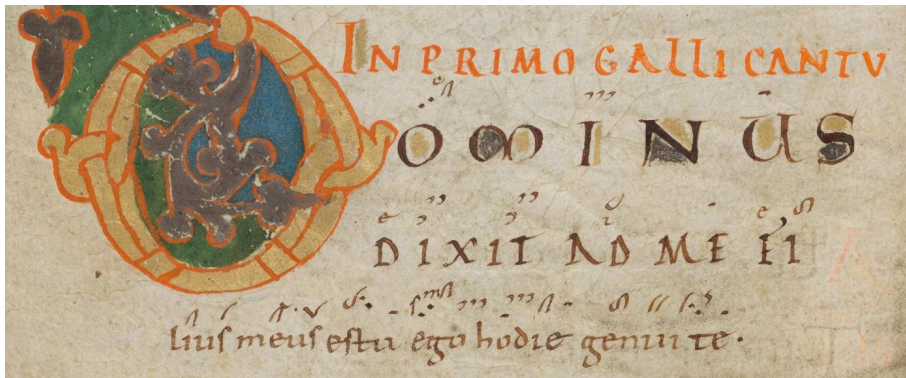 IN PRIMO GALLICANTU
DOMINUS
DIXIT AD ME FI
lius meus es tu ego hodie genui te.